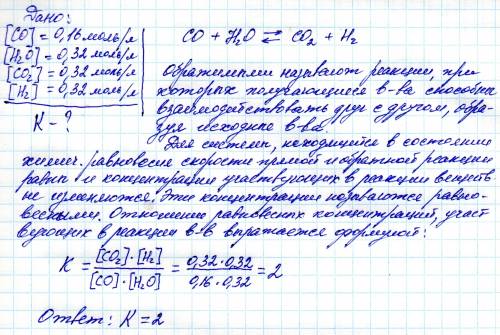 Дано:
[CO] = 0,16 моль/л
[H₂O] = 0,32 моль/л
[CO₂] = 0,32 моль/л
[H₂] = 0,32 моль/л
K - ?
CO + H₂O ⇄ CO₂ + H₂
Обратимыми называют реакции, при
которых получающиеся в-ва способны
взаимодействовать друг с другом, обра-
зуя исходные в-ва.
Для системы, находящейся в состоянии
химич. равновесия скорости прямой и обратной реакции
равны и концентрации участвующих в реакции веществ
не изменяются. Эти концентрации называются равно-
весными. Отношение равновесных концентраций, участ
вующих в реакции в-в выражается формулой:
K = [CO₂]·[H₂] / [CO]·[H₂O] = 0,32·0,32 / 0,16·0,32 = 2
Ответ: K = 2